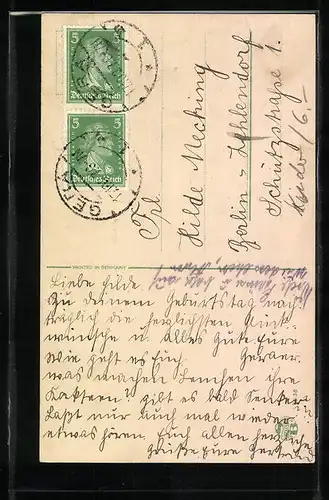 5
Deutsches Reich
5
Deutsches Reich
GERA
Frl.
Hilde Mecking
Berlin = Zehlendorf
Schützstraße 1.
PRINTED IN GERMANY
Liebe Hilde.
Zu deinem Geburtstag nach
träglich die herzlichsten Glück
wünsche u. alles gute Eure
Wie geht es Euch
was machen Lenchen ihre
Kakteen? gibt es bald Senker.
Laßt nur auch mal wieder
etwas hören. Euch allen herzliche
Grüße Eure Gertrud